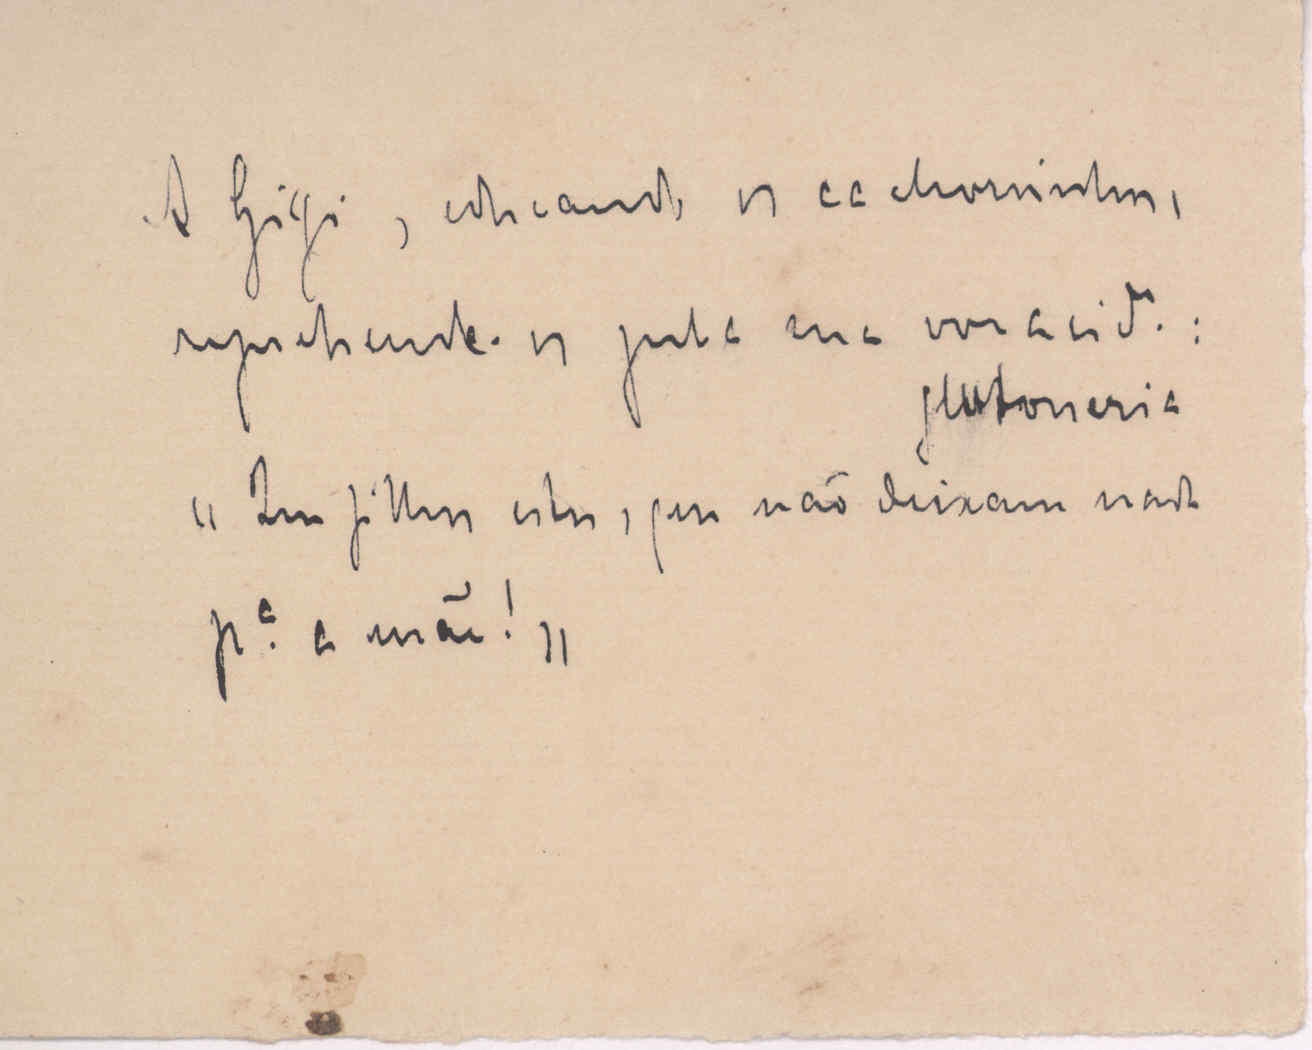 A Gigi, educando os cachorrinhos,
reprehende-os pela sua voracid.e :
glutoneria
"Que filhos estes, que não deixam nada
p.a a mãe!"